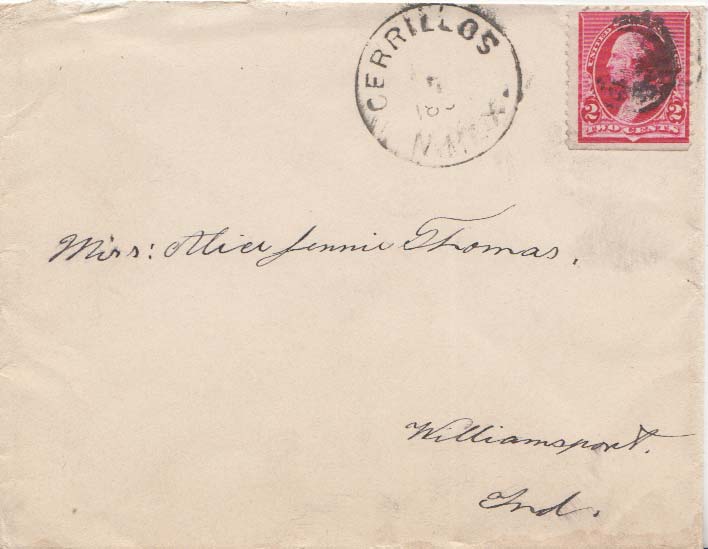 CERRILLOS
N. MEX.
UNITED
2 2
TWO CENTS
Miss: Alice Jennie Thomas.
Williamsport.
Ind.